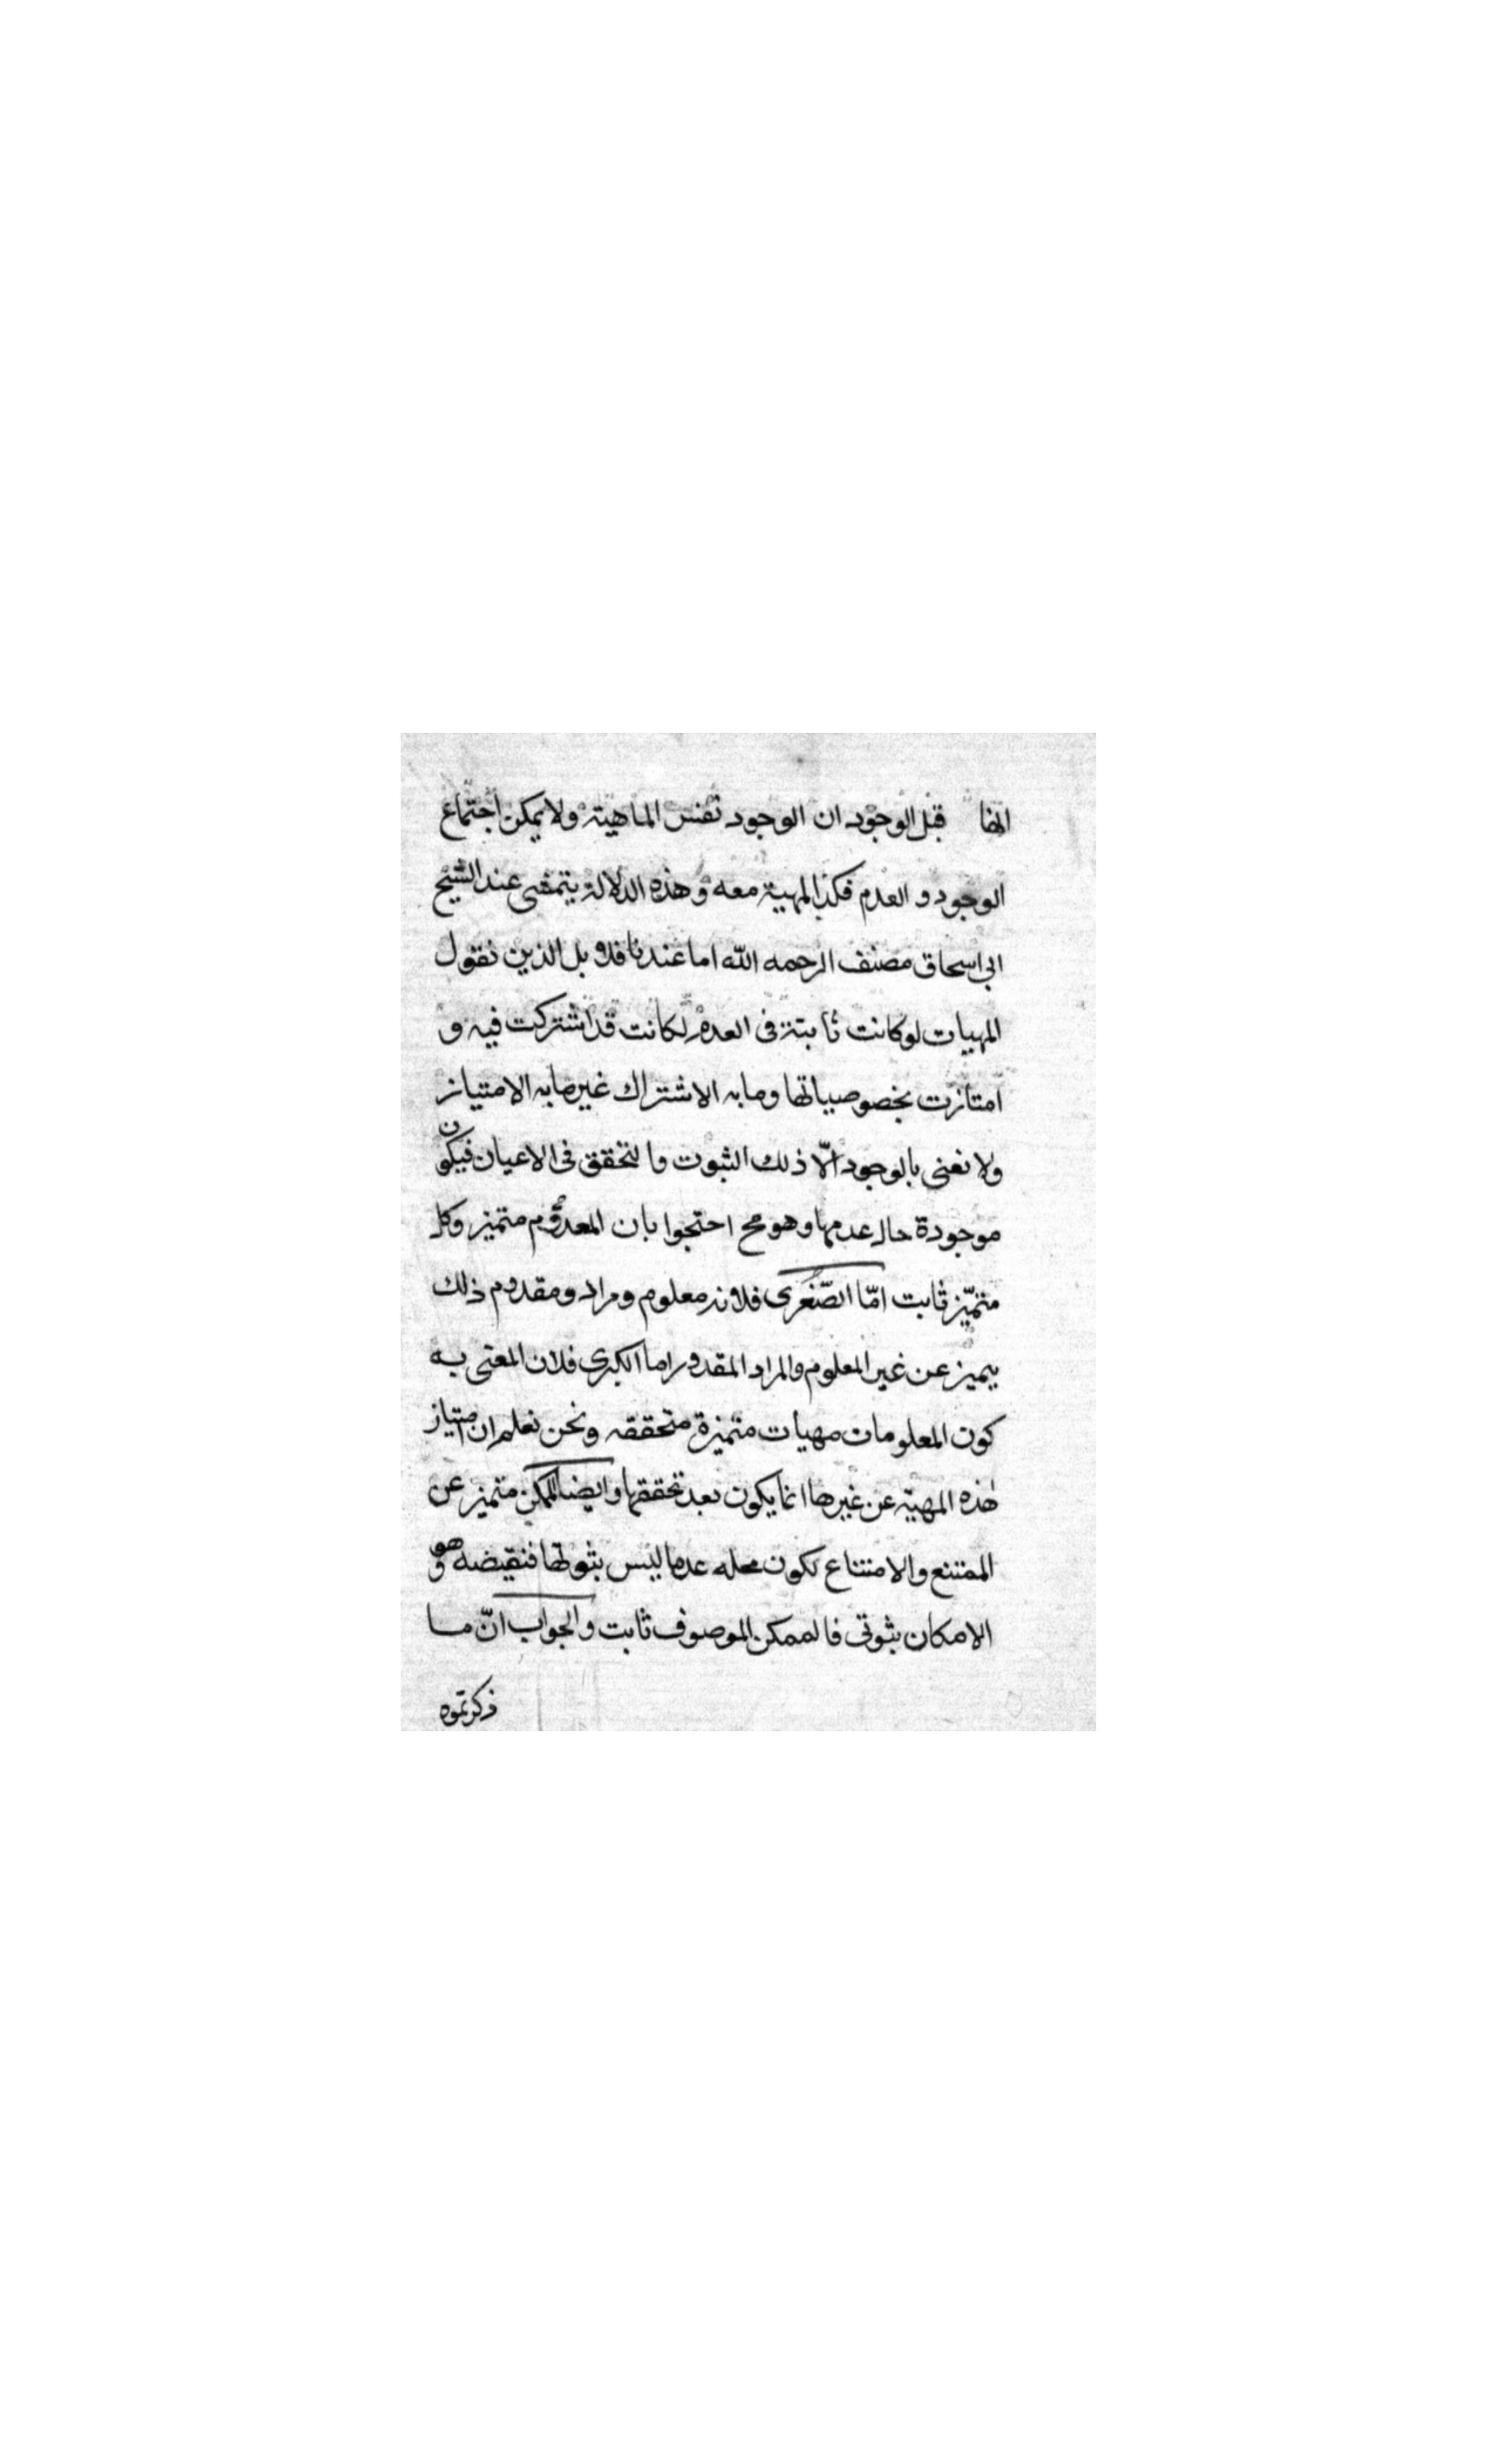 انها قبل الوجود ان الوجود نفس الماهية ولا يمكن اجتماع
الوجود و العدم فكذا المهية معه وهذه الدلالة يتمشى عند الشيخ
ابى اسحاق مصنف الرحمه الله اما عندنا فلا بل الذين نقول
المهيات لو كانت ثابتة فى العدم لكانت قد اشتركت فيه و
امتازت بخصوصياتها وما به الاشتراك غير ما به الامتياز
ولا نعنى بالوجود الّا ذلك الثبوت والتحقق فى الاعيان فيكون
موجودة حال عدمها وهو مح احتجوا بان المعدوم متميز وكل
متميّز ثابت امّا الصّغرى فلانه معلوم ومراد ومقدوم ذلك
يميز عن غير المعلوم والمراد المقدور اما الكبرى فلان المعنى به
كون المعلومات مهيات متميزة متحققه ونحن نعلم ان امتياز
هذه المهيّه عن غيرها انما يكون بعد تحققها وايضا الممكن متميز عن
الممتنع والامتناع لكون محله عدما ليس بثبوتها فنقيضه وهو
الامكان بثوتى فالممكن الموصوف ثابت والجواب انّ ما
ذكرتموه